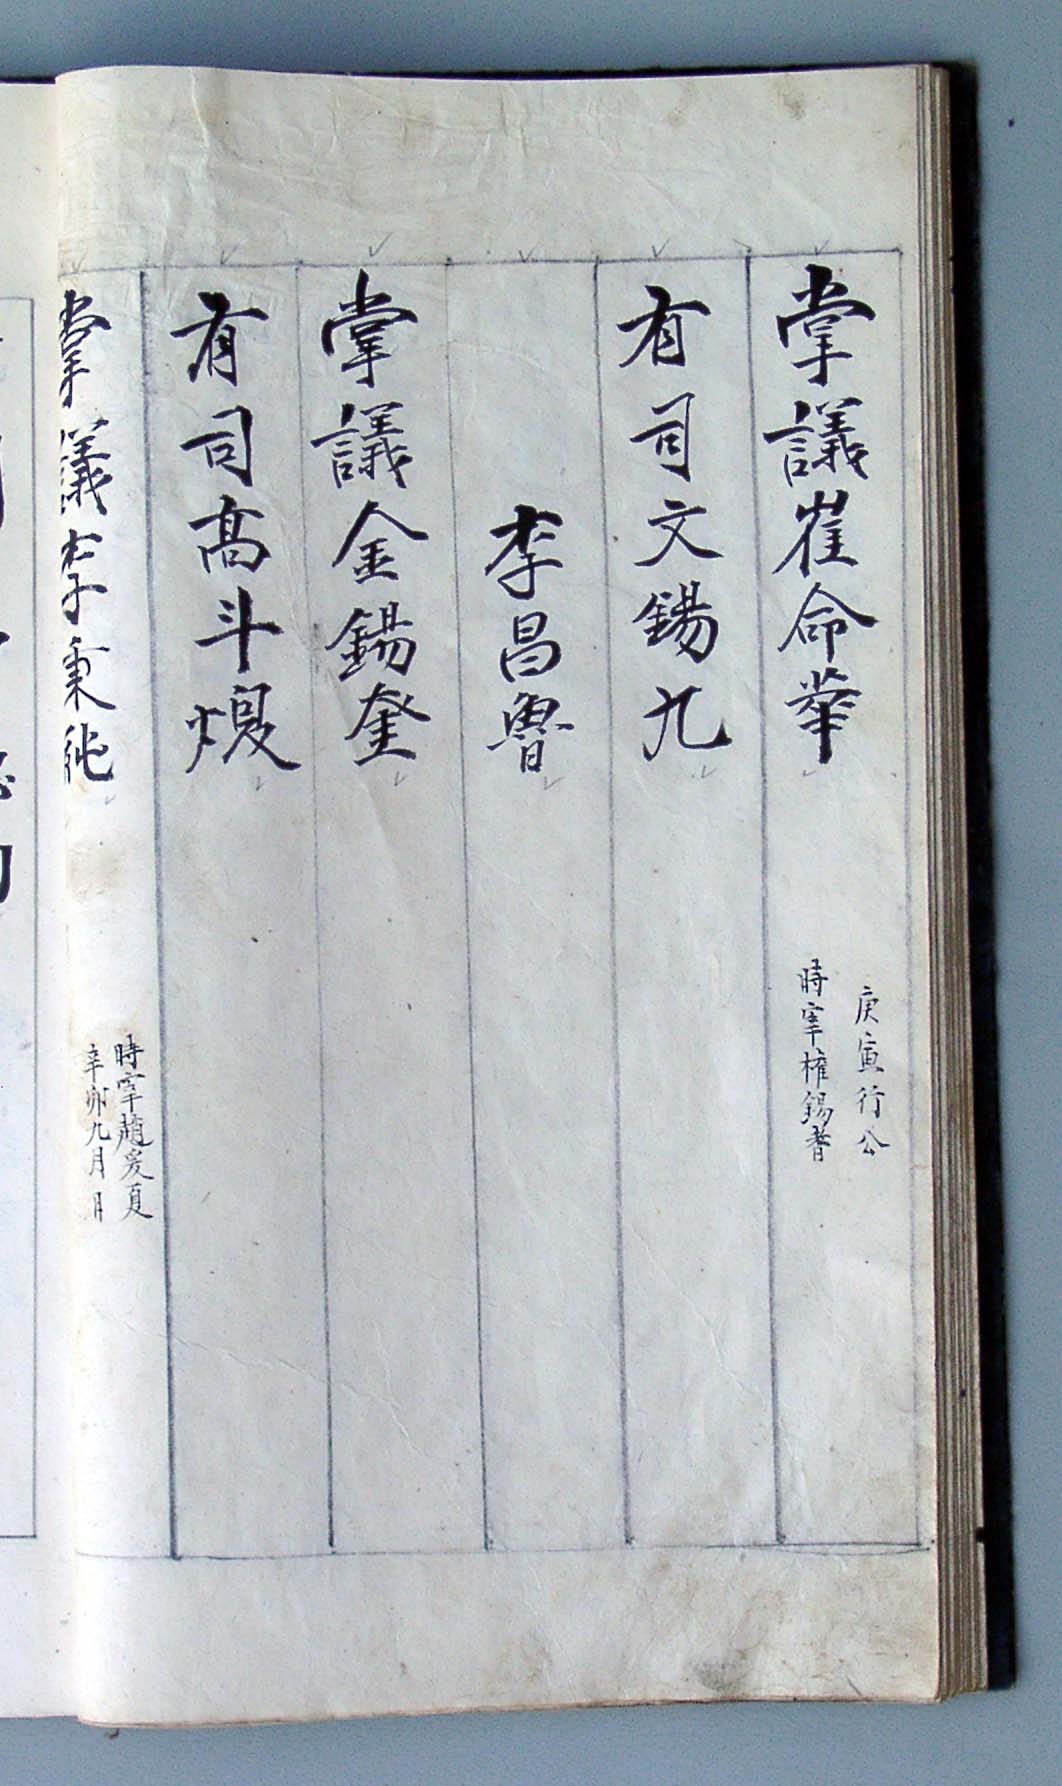 掌議崔命華
庚寅行公
時宰權錫
有司文錫九
李昌魯
掌議金錫奎
有司高斗煅
掌議李秉純
時宰趙爰夏
辛卯九月 日